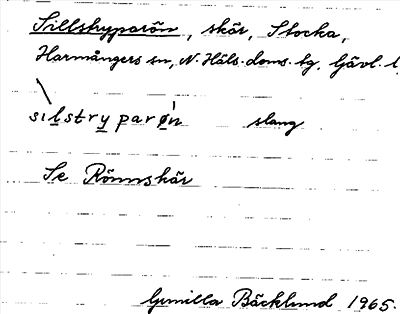 Sillstryparön, skär, Stocka,
Harmångers sn, N. Häls. doms. tg, Gävl. l,
sılstryparøn slang
Se Rönnskär
Gunilla Bäcklund 1965.